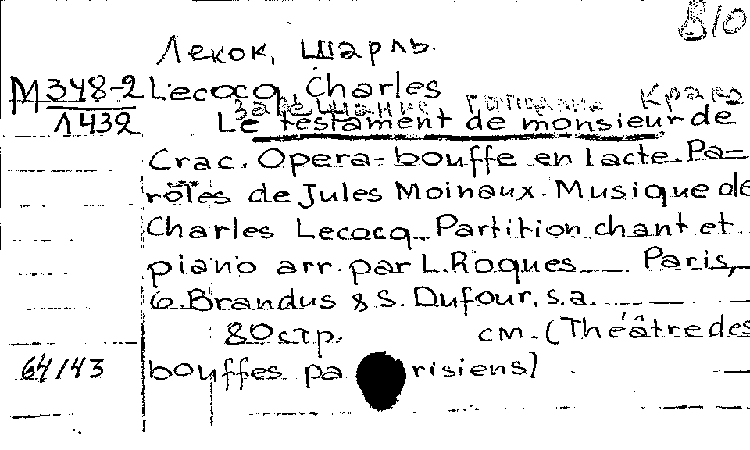 810
Лекок, Шарль.
М 348-2 Lecocq, Charles
Завещание господина Крака
Л 432 Le testament de monsieur de
Crac. Opera-bouffe en 1 acte. Pa-
roles de Jules Moinaux. Musique de
Charles Lecocq. Partition chant et
piano arr. par L. Roques. Paris,
G. Brandus & S. Dufour, s.a.
80 стр. см. (Théâtre des
64143 bouffes parisiens)